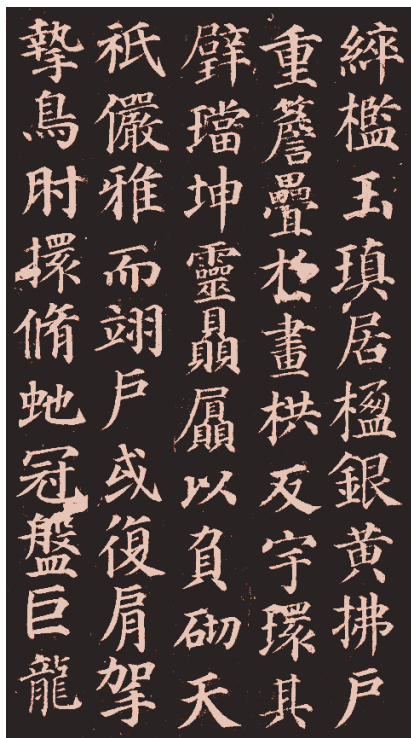 綷檻玉瑱居楹銀黃拂戶
重簷疊畫栱反宇環其
璧璫坤靈贔屭以負砌天
祇儼雅而翊戶或復肩挐
摯鳥肘擐脩虵冠盤巨龍